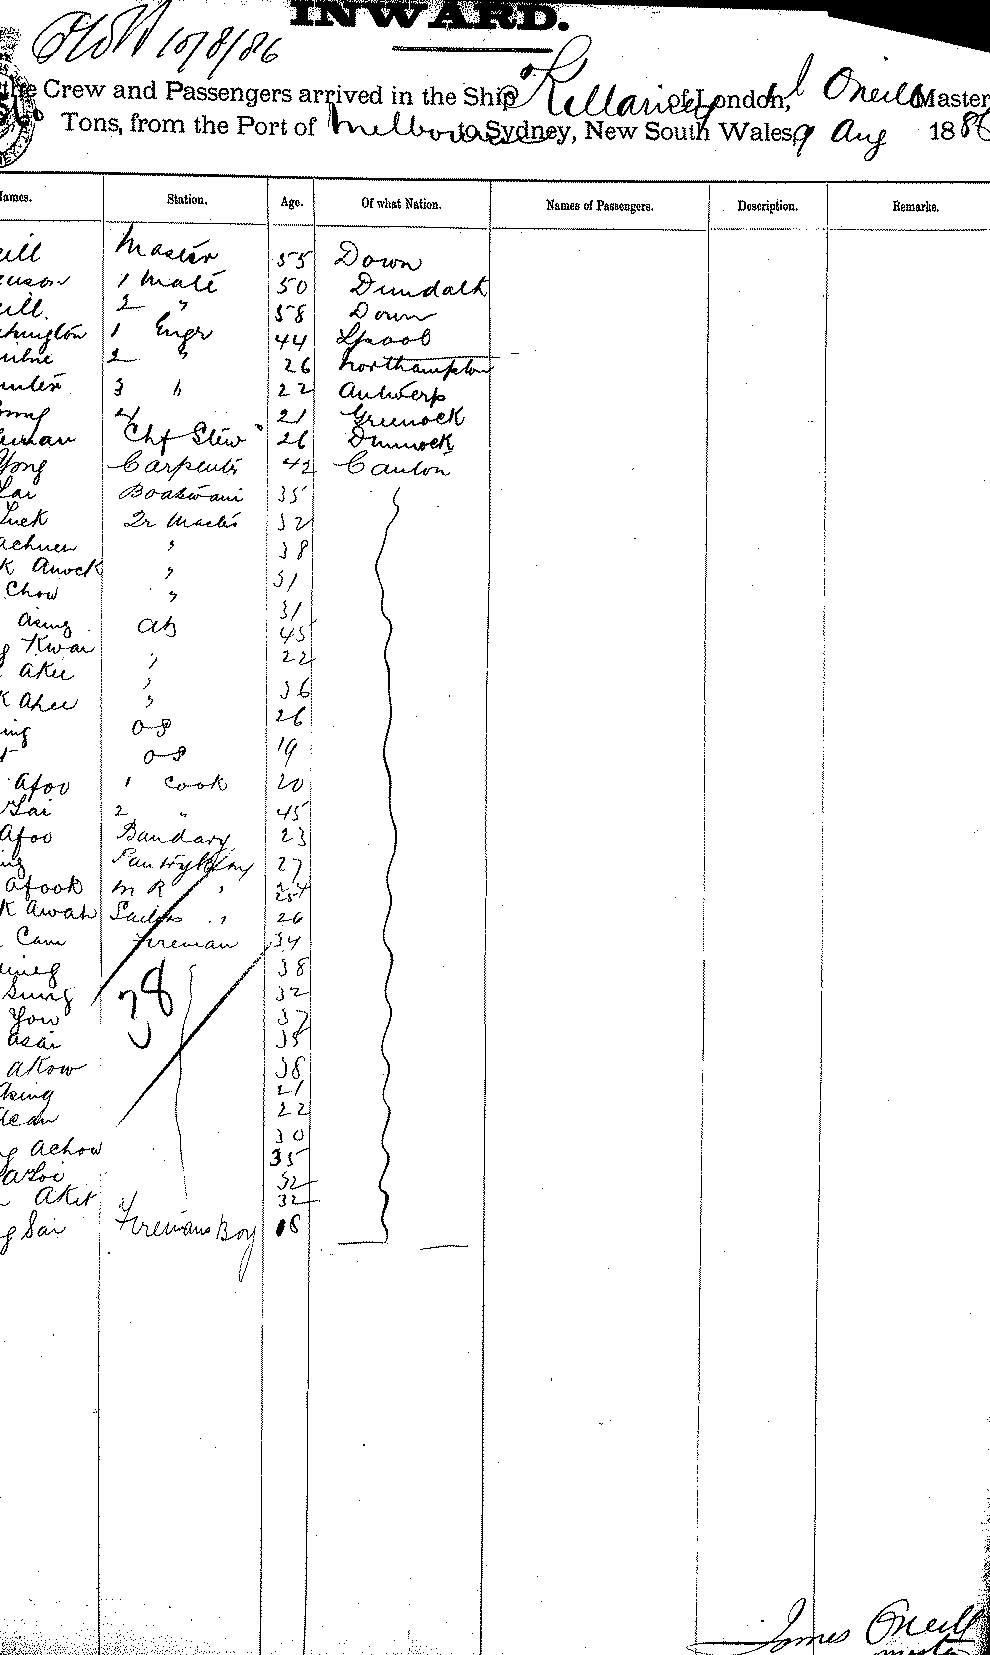 INWARD.
10/8/86
the Crew and Passengers arrived in the Ship Killarney of London, Oneill Master
Tons, from the Port of Melbourne to Sydney, New South Wales, 9 Aug 1886
Names. Station. Age. Of what Nation. Names of Passengers. Description. Remarks.
eill Master 55 Down
1 Mate 50 Dundalk
eill. 2 " 58 Down
1 Engr 44 Lpool
2 " 26 Northampton
3 " 22 Antwerp
21 Greenock
Chf Stew 26
Yong Carpenter 42 Canton
Lai Boatswain 35
Luck Qr Master 32
" 38
k Awock " 31
Chow " 31
Asing AB 45
g Kwai " 22
Akee " 36
k Ahee " 26
ing OS
OS 19
Afoo 1 Cook 20
Lai 2 " 45
Afoo Bandary 23
Pantry Boy 27
Afook M R "
k Awah Sailors " 26
Cam Fireman 34
38
Sung 32
You 37
Asai 35
Akow 38
21
22
30
g Achow 35
32
Akit 32
g Sai Firemans Boy 18
38
James Oneill
Master